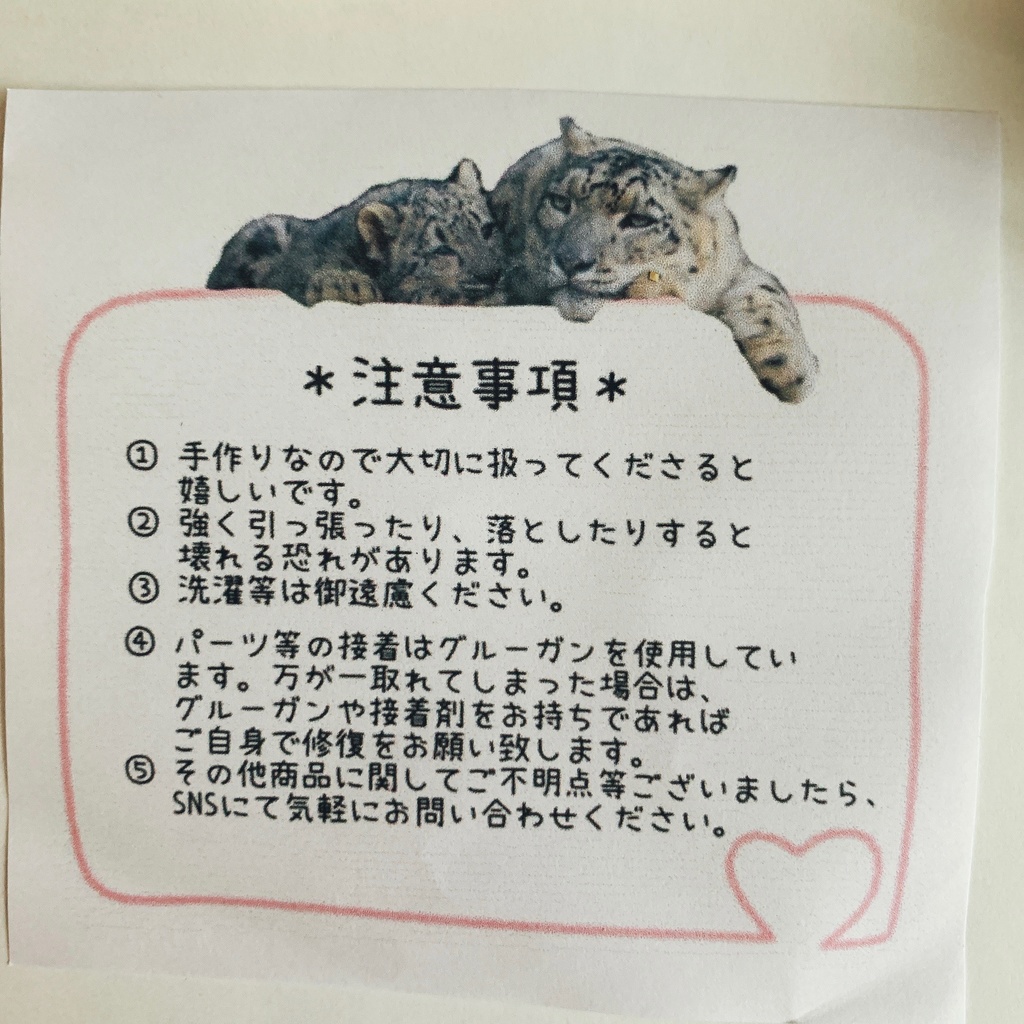 *注意事項*
① 手作りなので大切に扱ってくださると
嬉しいです。
② 強く引っ張ったり、落としたりすると
壊れる恐れがあります。
③ 洗濯等は御遠慮ください。
④ パーツ等の接着はグルーガンを使用してい
ます。万が一取れてしまった場合は、
グルーガンや接着剤をお持ちであれば
ご自身で修復をお願い致します。
⑤ その他商品に関してご不明点等ございましたら、
SNSにて気軽にお問い合わせください。